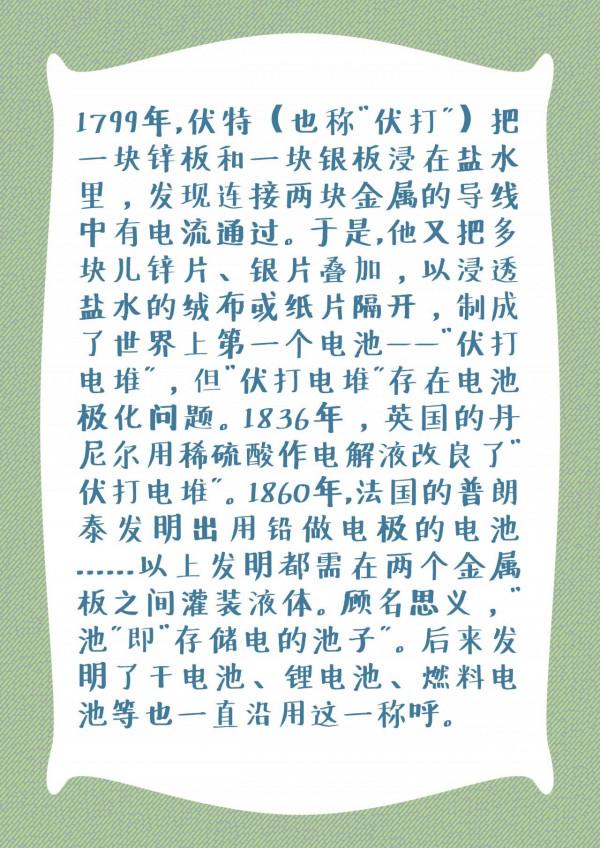 1799年,伏特（也称"伏打"）把
一块锌板和一块银板浸在盐水
里，发现连接两块金属的导线
中有电流通过。于是,他又把多
块儿锌片、银片叠加，以浸透
盐水的绒布或纸片隔开，制成
了世界上第一个电池——"伏打
电堆"，但"伏打电堆"存在电池
极化问题。1836年，英国的丹
尼尔用稀硫酸作电解液改良了"
伏打电堆"。1860年,法国的普朗
泰发明出用铅做电极的电池
……以上发明都需在两个金属
板之间灌装液体。顾名思义，"
池"即"存储电的池子"。后来发
明了干电池、锂电池、燃料电
池等也一直沿用这一称呼。